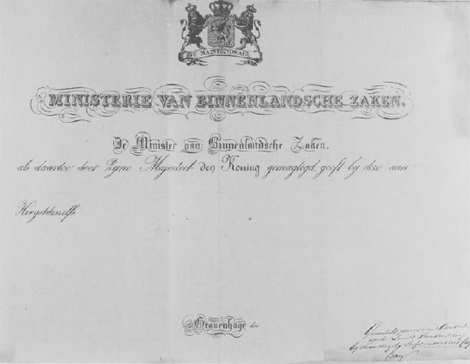 JE MAINTIENDRAI
MINISTERIE VAN BINNENLANDSCHE ZAKEN.
De Minister van Binnenlandsche Zaken,
als daartoe door Zijne Majesteit den Koning gemagtigd geeft bij deze aan
Hoogstdeszelfs
'sGravenhage den